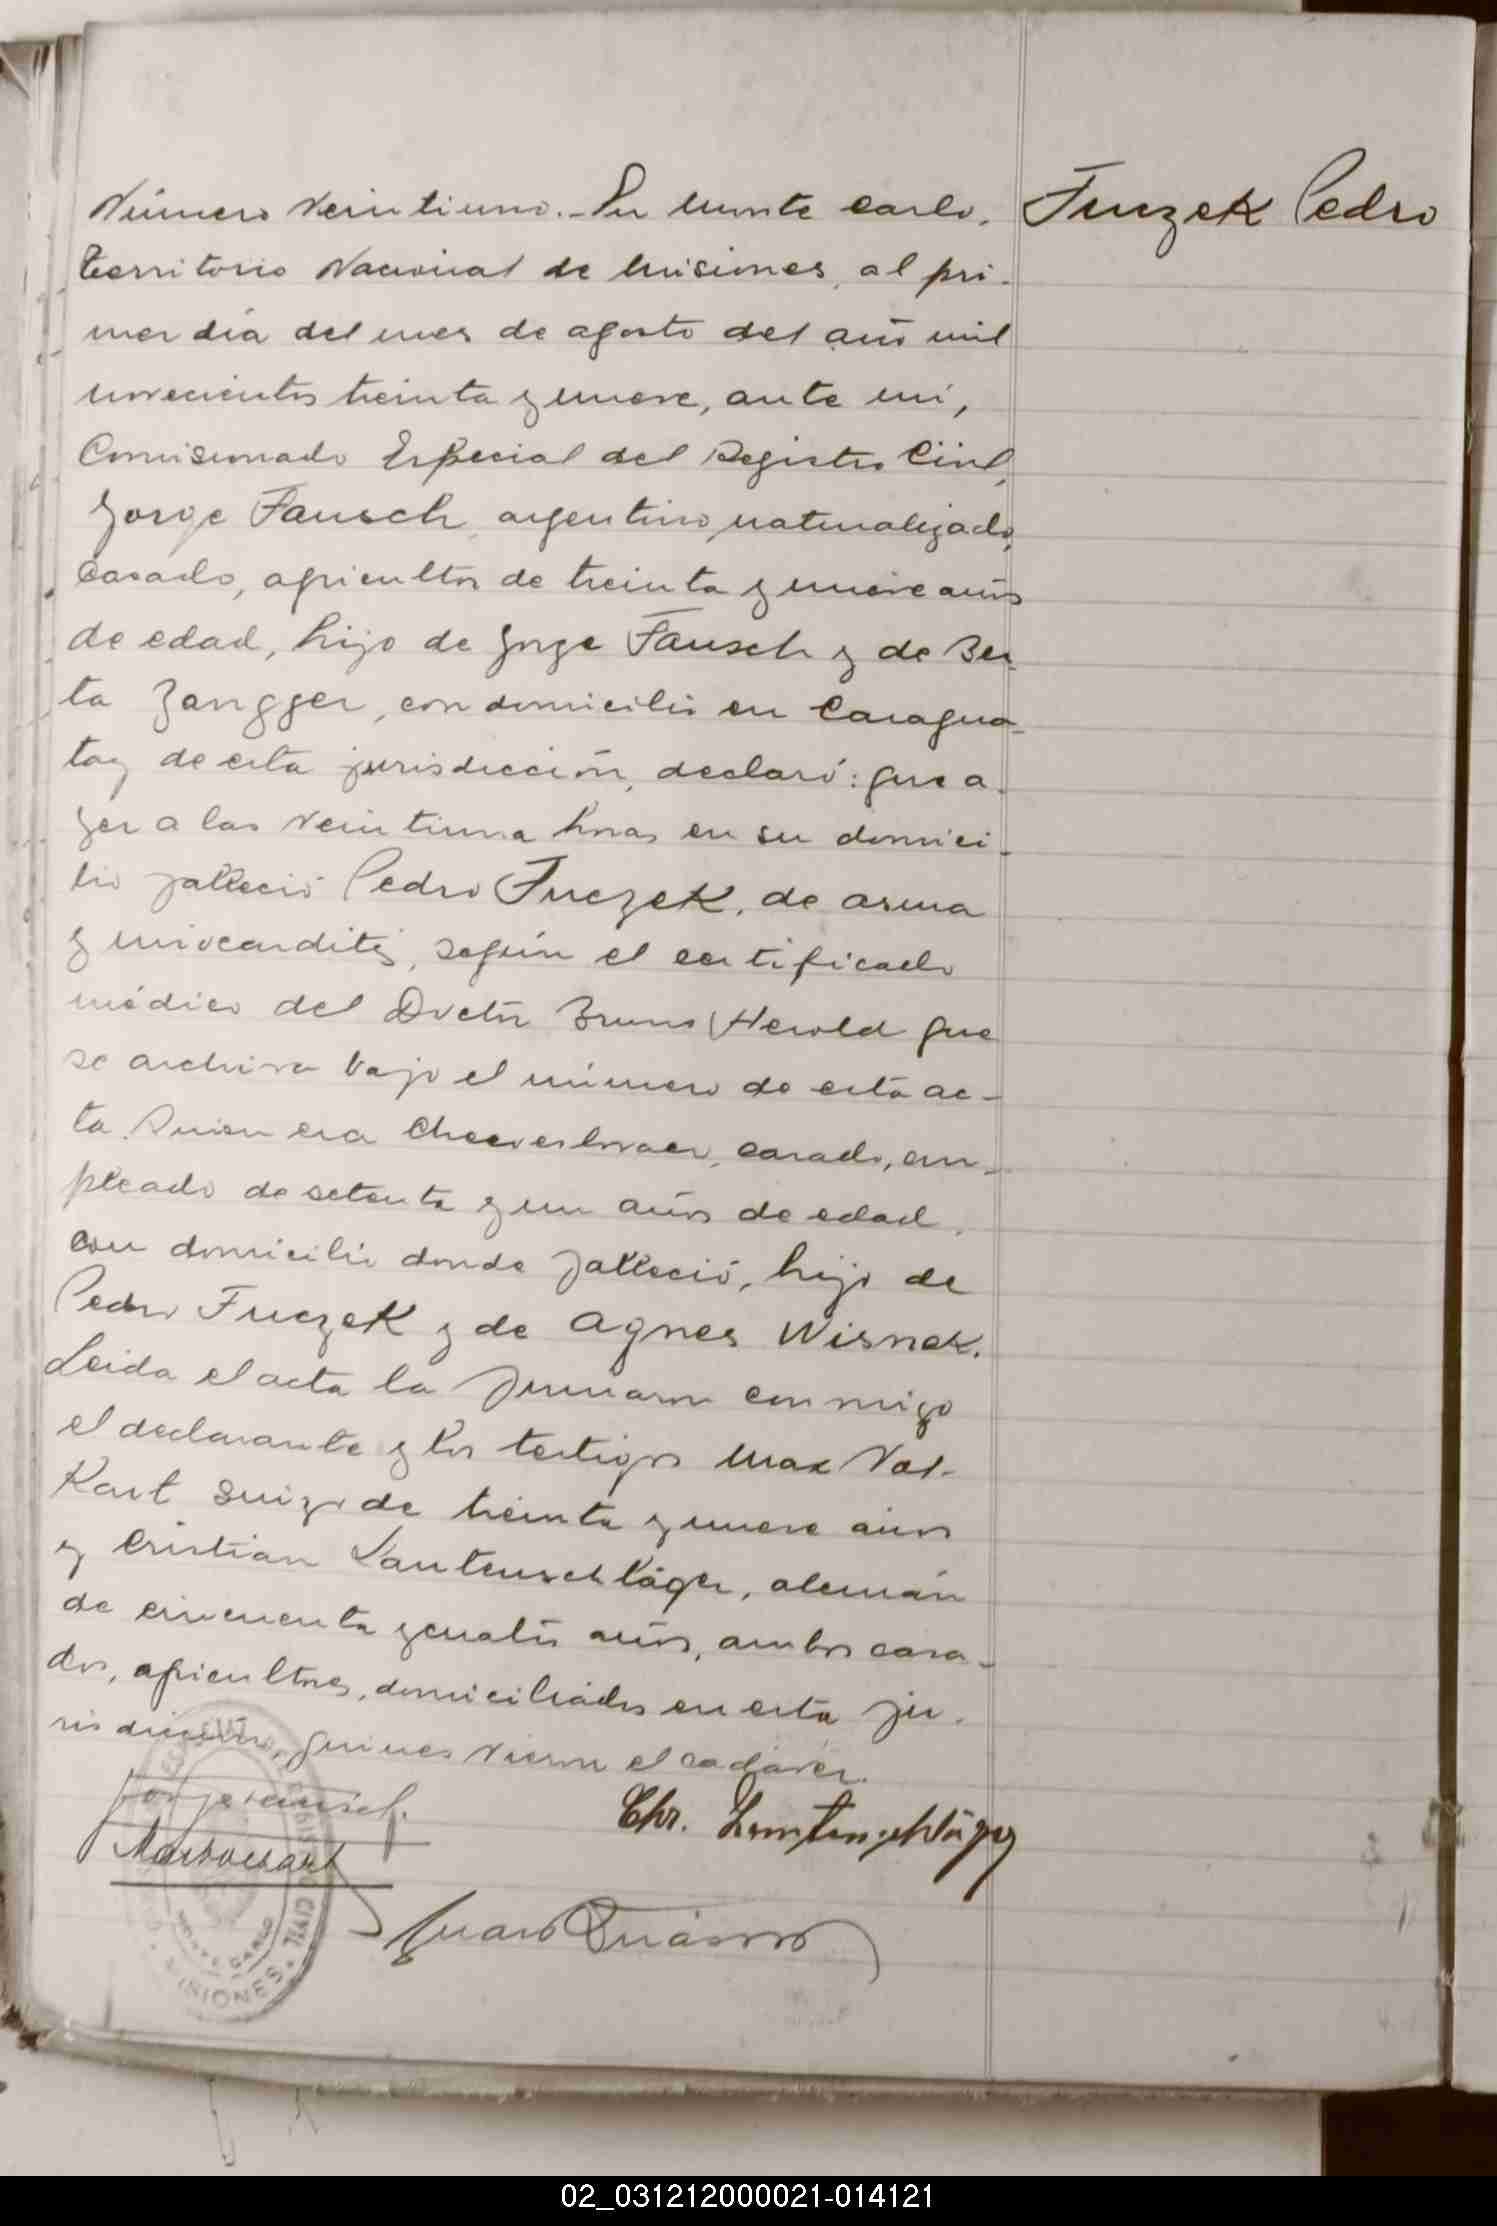 Número Veintiuno.- En Monte Carlo,
Fuczek Pedro
Territorio Nacional de Misiones, al pri-
mer día del mes de agosto del año mil
novecientos treinta y nueve, ante mí,
Comisionado Especial del Registro Civil,
Jorge Fausch, argentino naturalizado,
casado, agricultor de treinta y nueve años
de edad, hijo de Jorge Fausch y de Ber-
ta Zangger, con domicilio en Caragua-
tay de esta jurisdicción, declaró: que a-
yer a las veintiuna horas en su domici-
lio falleció Pedro Fuczek, de asma
y miocarditis, según el certificado
médico del Doctor Bruno Herold que
se archiva bajo el número de esta ac-
ta. Quien era Checoeslovaco, casado, em-
pleado de setenta y un años de edad,
con domicilio donde falleció, hijo de
Pedro Fuczek y de Agnes Wisnek.
Leida el acta la firmaron conmigo
el declarante y los testigos Max Vol-
Kart suizo de treinta y nueve años
y Cristian Lautenschläger, alemán
de cincuenta y cuatro años, ambos casa-
dos, agricultores, domiciliados en esta ju-
risdicción, quienes vieron el cadáver.
Jorge Fausch.
Chr. Lautenschläger
Max Volkart
CIVIL
MONTE CARLO
MISIONES
02_031212000021-014121